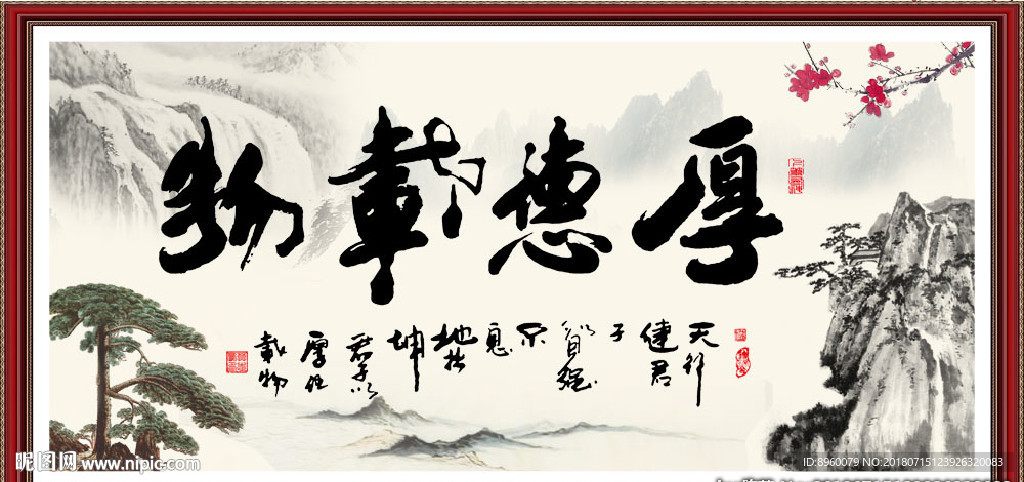 厚德载物
天行
健君
子
自强
不
息
地势
坤
君子以
厚德
载物
昵图网 www.nipic.com
ID:8960079 NO:20180715123926320083